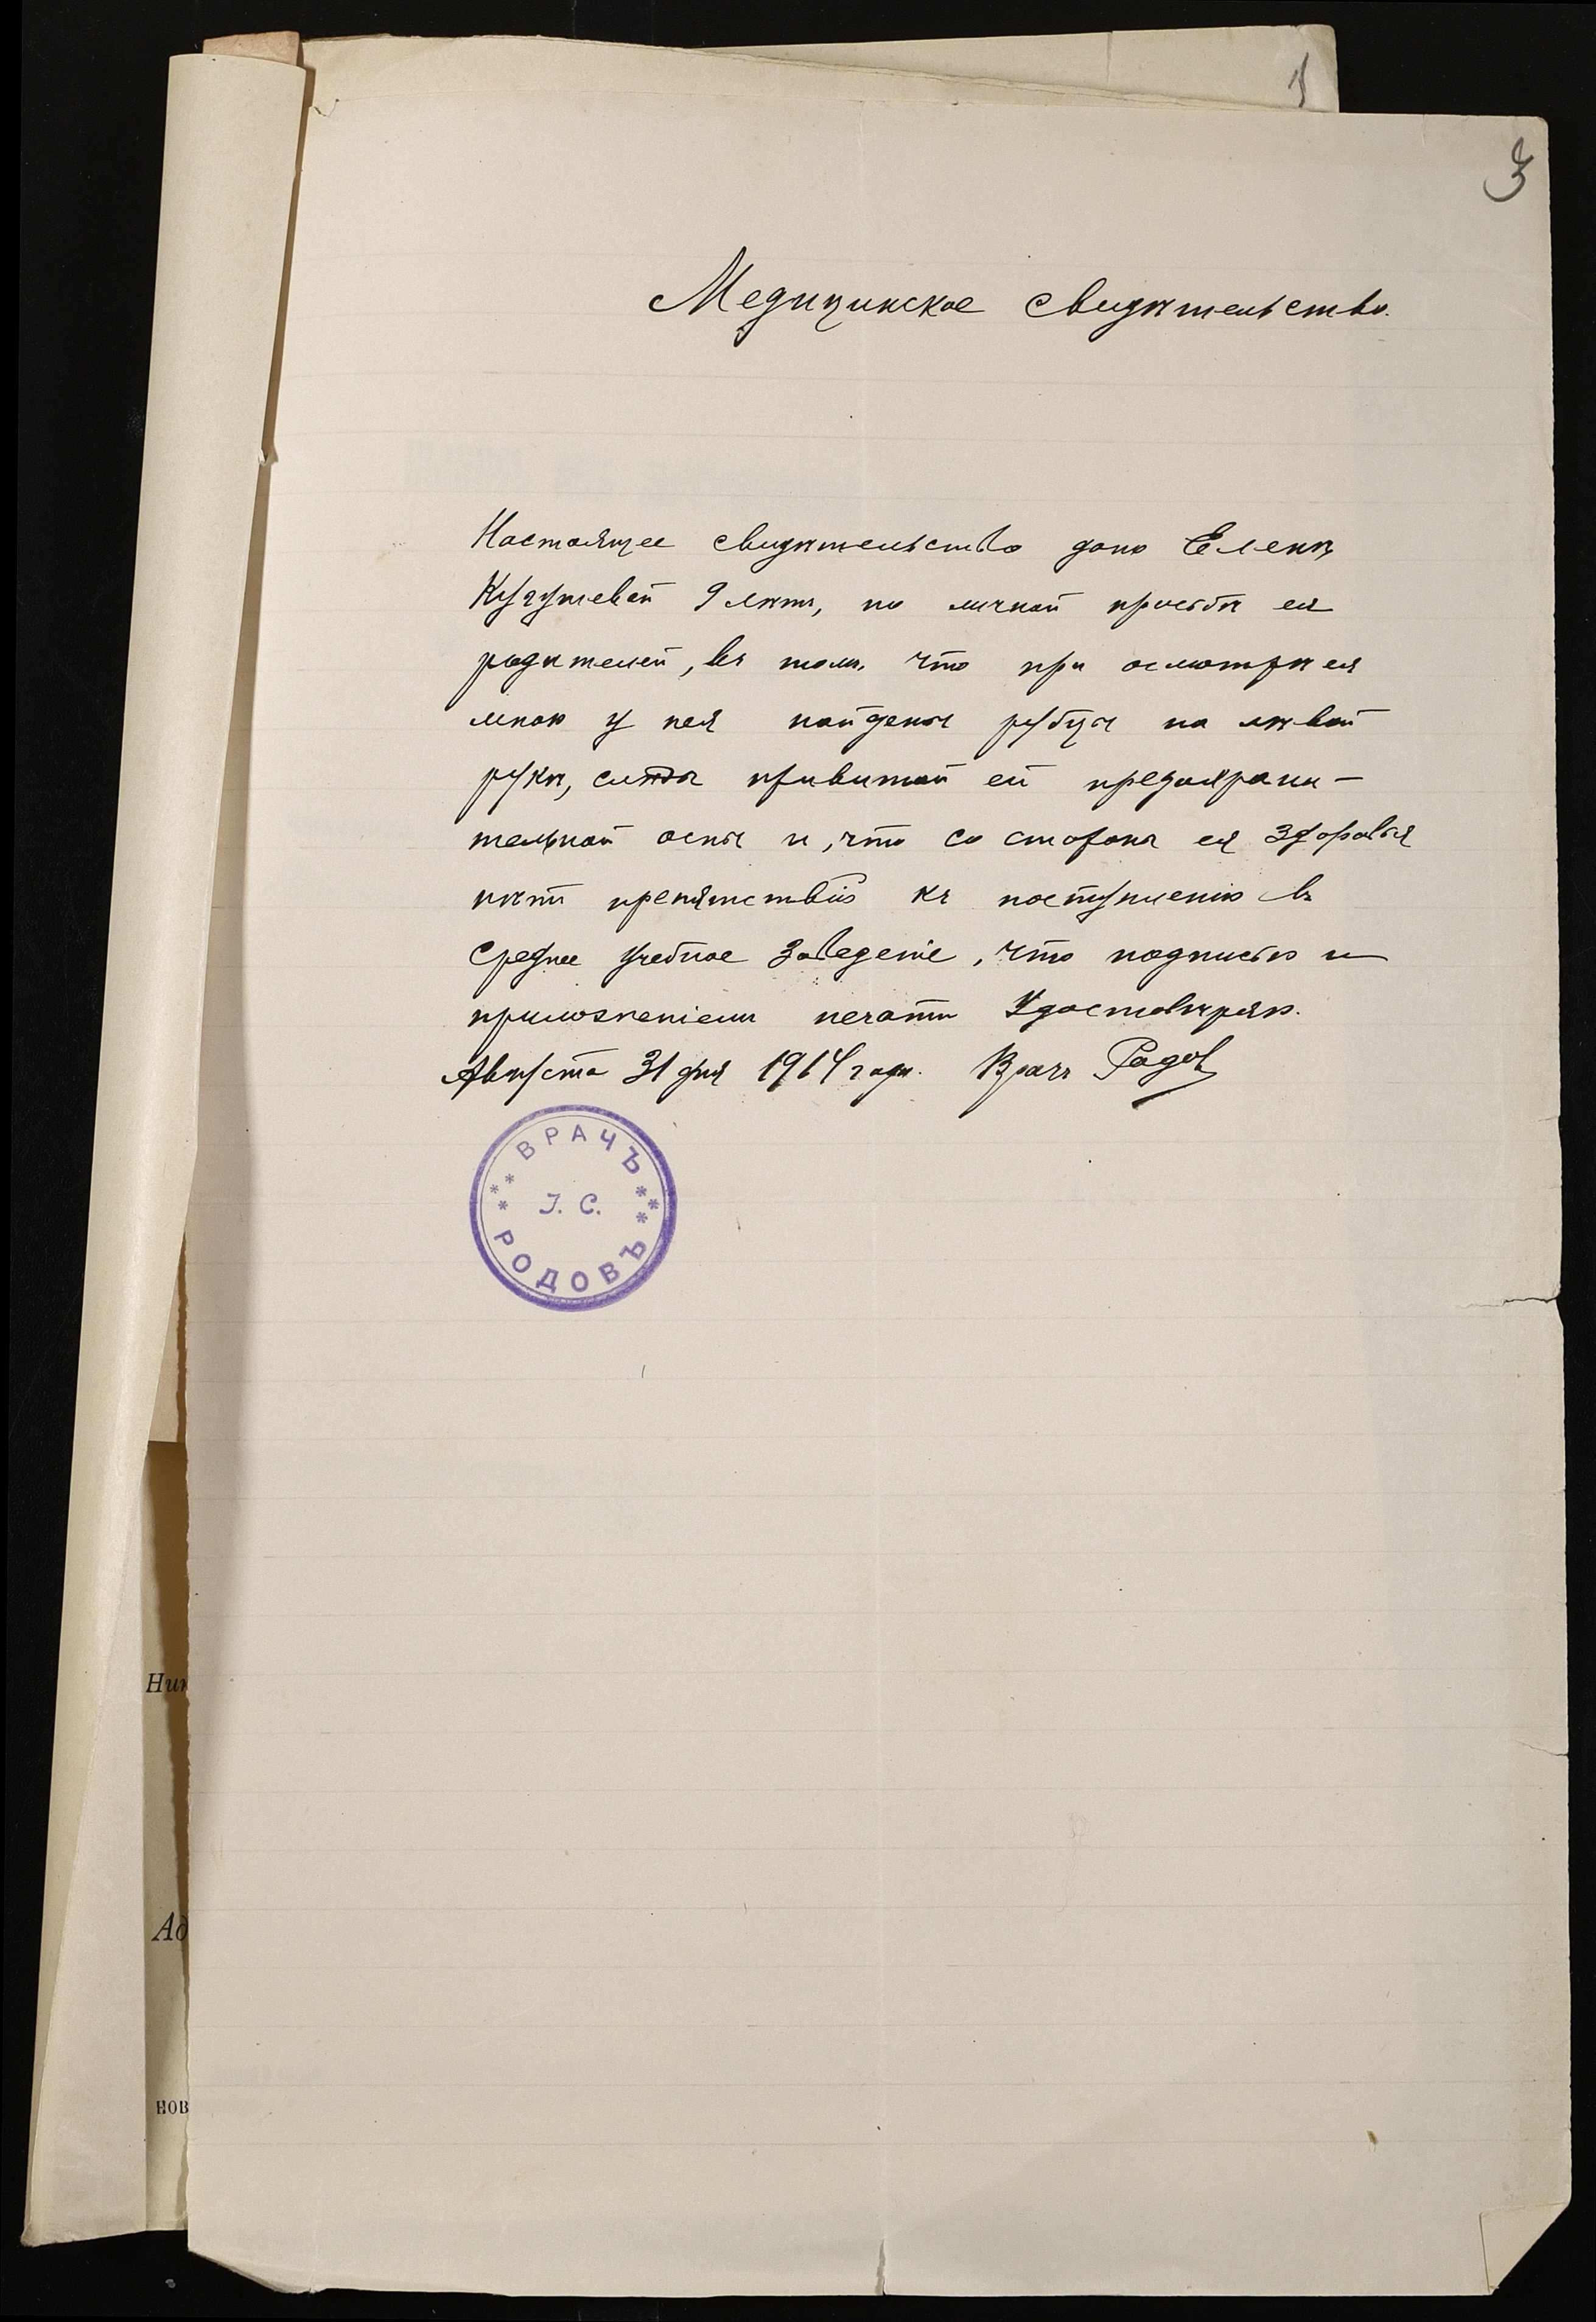 1
3
Медицинское свидѣтельство.
Настоящее свидѣтельство дано Еленѣ
Кугушевой 9 лѣтъ, по личной просьбѣ ея
родителей, въ томъ что при осмотрѣ ея
мною у нея найдены рубцы на лѣвой
рукѣ, слѣды привитой ей предохрани-
тельной оспы и, что со стороны ея здоровья
нѣтъ препятствію къ поступленію въ
среднее учебное заведеніе, что подписью и
приложеніемъ печати удостовѣряю.
Августа 31 дня 1914 года. Врачъ Родовъ
ВРАЧЪ
I. С.
РОДОВЪ
Ник
Ад
нов